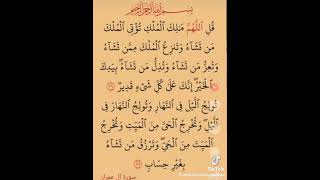 بِسْمِ اللَّهِ الرَّحْمَٰنِ الرَّحِيمِ
قُلِ ٱللَّهُمَّ مَٰلِكَ ٱلْمُلْكِ تُؤْتِى ٱلْمُلْكَ
مَن تَشَآءُ وَتَنزِعُ ٱلْمُلْكَ مِمَّن تَشَآءُ
وَتُعِزُّ مَن تَشَآءُ وَتُذِلُّ مَن تَشَآءُ بِيَدِكَ
ٱلْخَيْرُ إِنَّكَ عَلَىٰ كُلِّ شَىْءٍ قَدِيرٌ ٢٦
تُولِجُ ٱلَّيْلَ فِى ٱلنَّهَارِ وَتُولِجُ ٱلنَّهَارَ فِى
ٱلَّيْلِ وَتُخْرِجُ ٱلْحَىَّ مِنَ ٱلْمَيِّتِ وَتُخْرِجُ
ٱلْمَيِّتَ مِنَ ٱلْحَىِّ وَتَرْزُقُ مَن تَشَآءُ
بِغَيْرِ حِسَابٍ ٢٧
سورة آل عمران
TikTok